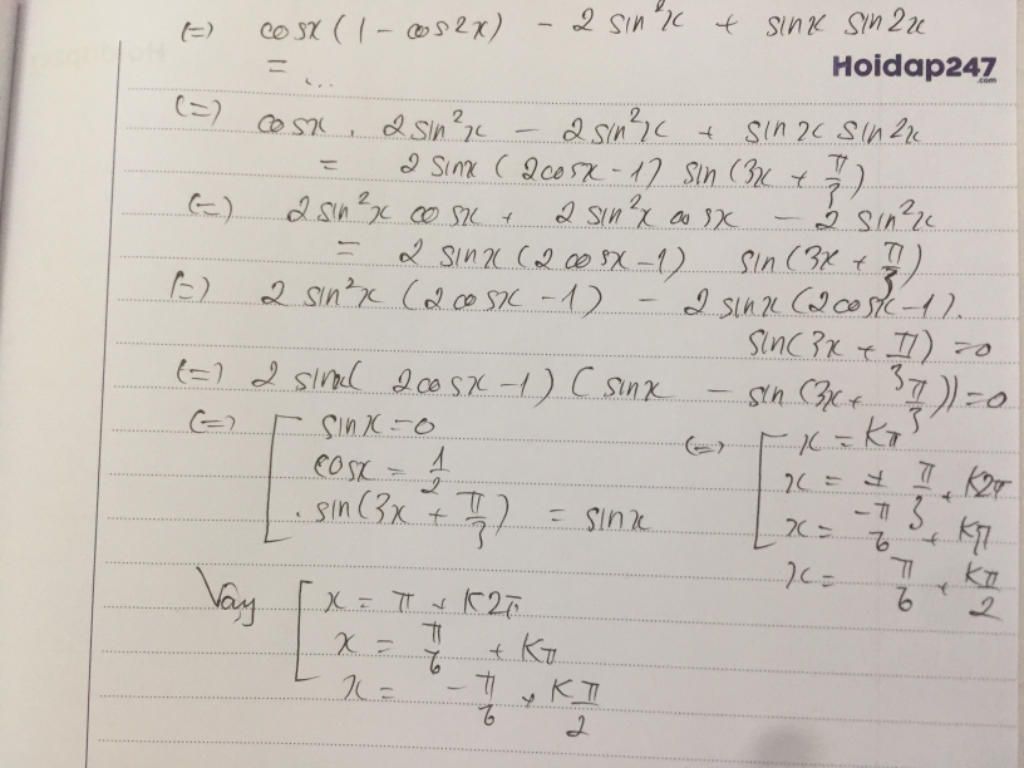 (=) cosx (1 - cos2x) - 2 sin²x + sinx sin2x
= ...
Hoidap247
.com
(=) cosx . 2sin²x - 2sin²x + sinx sin2x
= 2 sinx (2cosx - 1) sin (3x + π/3)
(=) 2 sin²x cosx + 2 sin²x cosx - 2 sin²x
= 2 sinx (2cosx - 1) sin (3x + π/3)
(=) 2 sin²x (2cosx - 1) - 2 sinx (2cosx - 1).
sin(3x + π/3) = 0
(=) 2 sinx( 2cosx - 1) ( sinx - sin (3x + π/3)) = 0
(=) [ sinx = 0 (=) [ x = kπ
cosx = 1/2 x = ± π/3 + k2π
. sin (3x + π/3) = sinx x = -π/6 + kπ
x = π/6 + kπ/2
Vậy [ x = π + k2π
x = π/6 + kπ
x = -π/6 + kπ/2